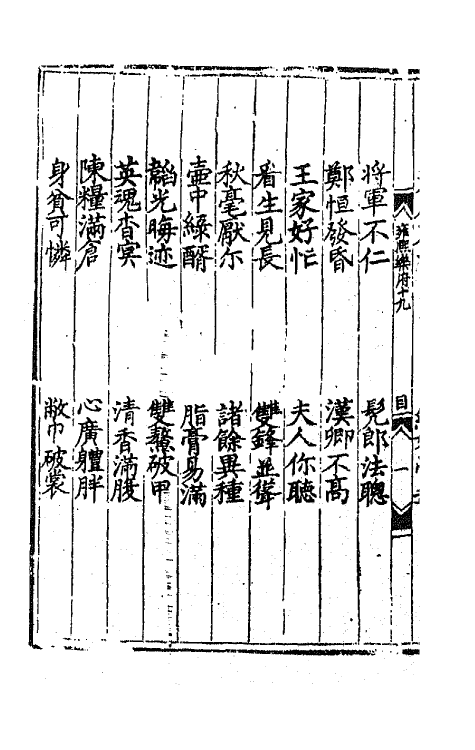 雍熙樂府十九
目
一
將軍不仁　髡郎法聰
鄭恒發昏　漢卿不高
王家好忙　夫人你聽
看生見長　雙鋒並聳
秋毫厭尓　諸餘異種
壺中綠醑　脂膏易滿
韜光晦迹　雙鰲破甲
英魂杳冥　清香滿腹
陳糧滿倉　心廣體胖
身貧可憐　敝巾破裳